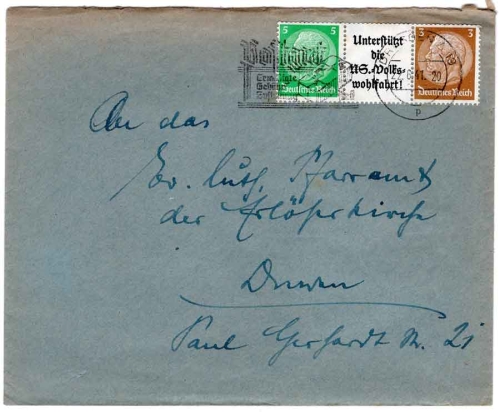 5 5
Deutsches Reich
Unterstützt
die
NS.-Volks-
wohlfahrt!
3 3
Deutsches Reich
41. 20
p
An das
Ev. luth. Pfarramt
der Erlöserkirche
Paul Gerhardt Str. 21